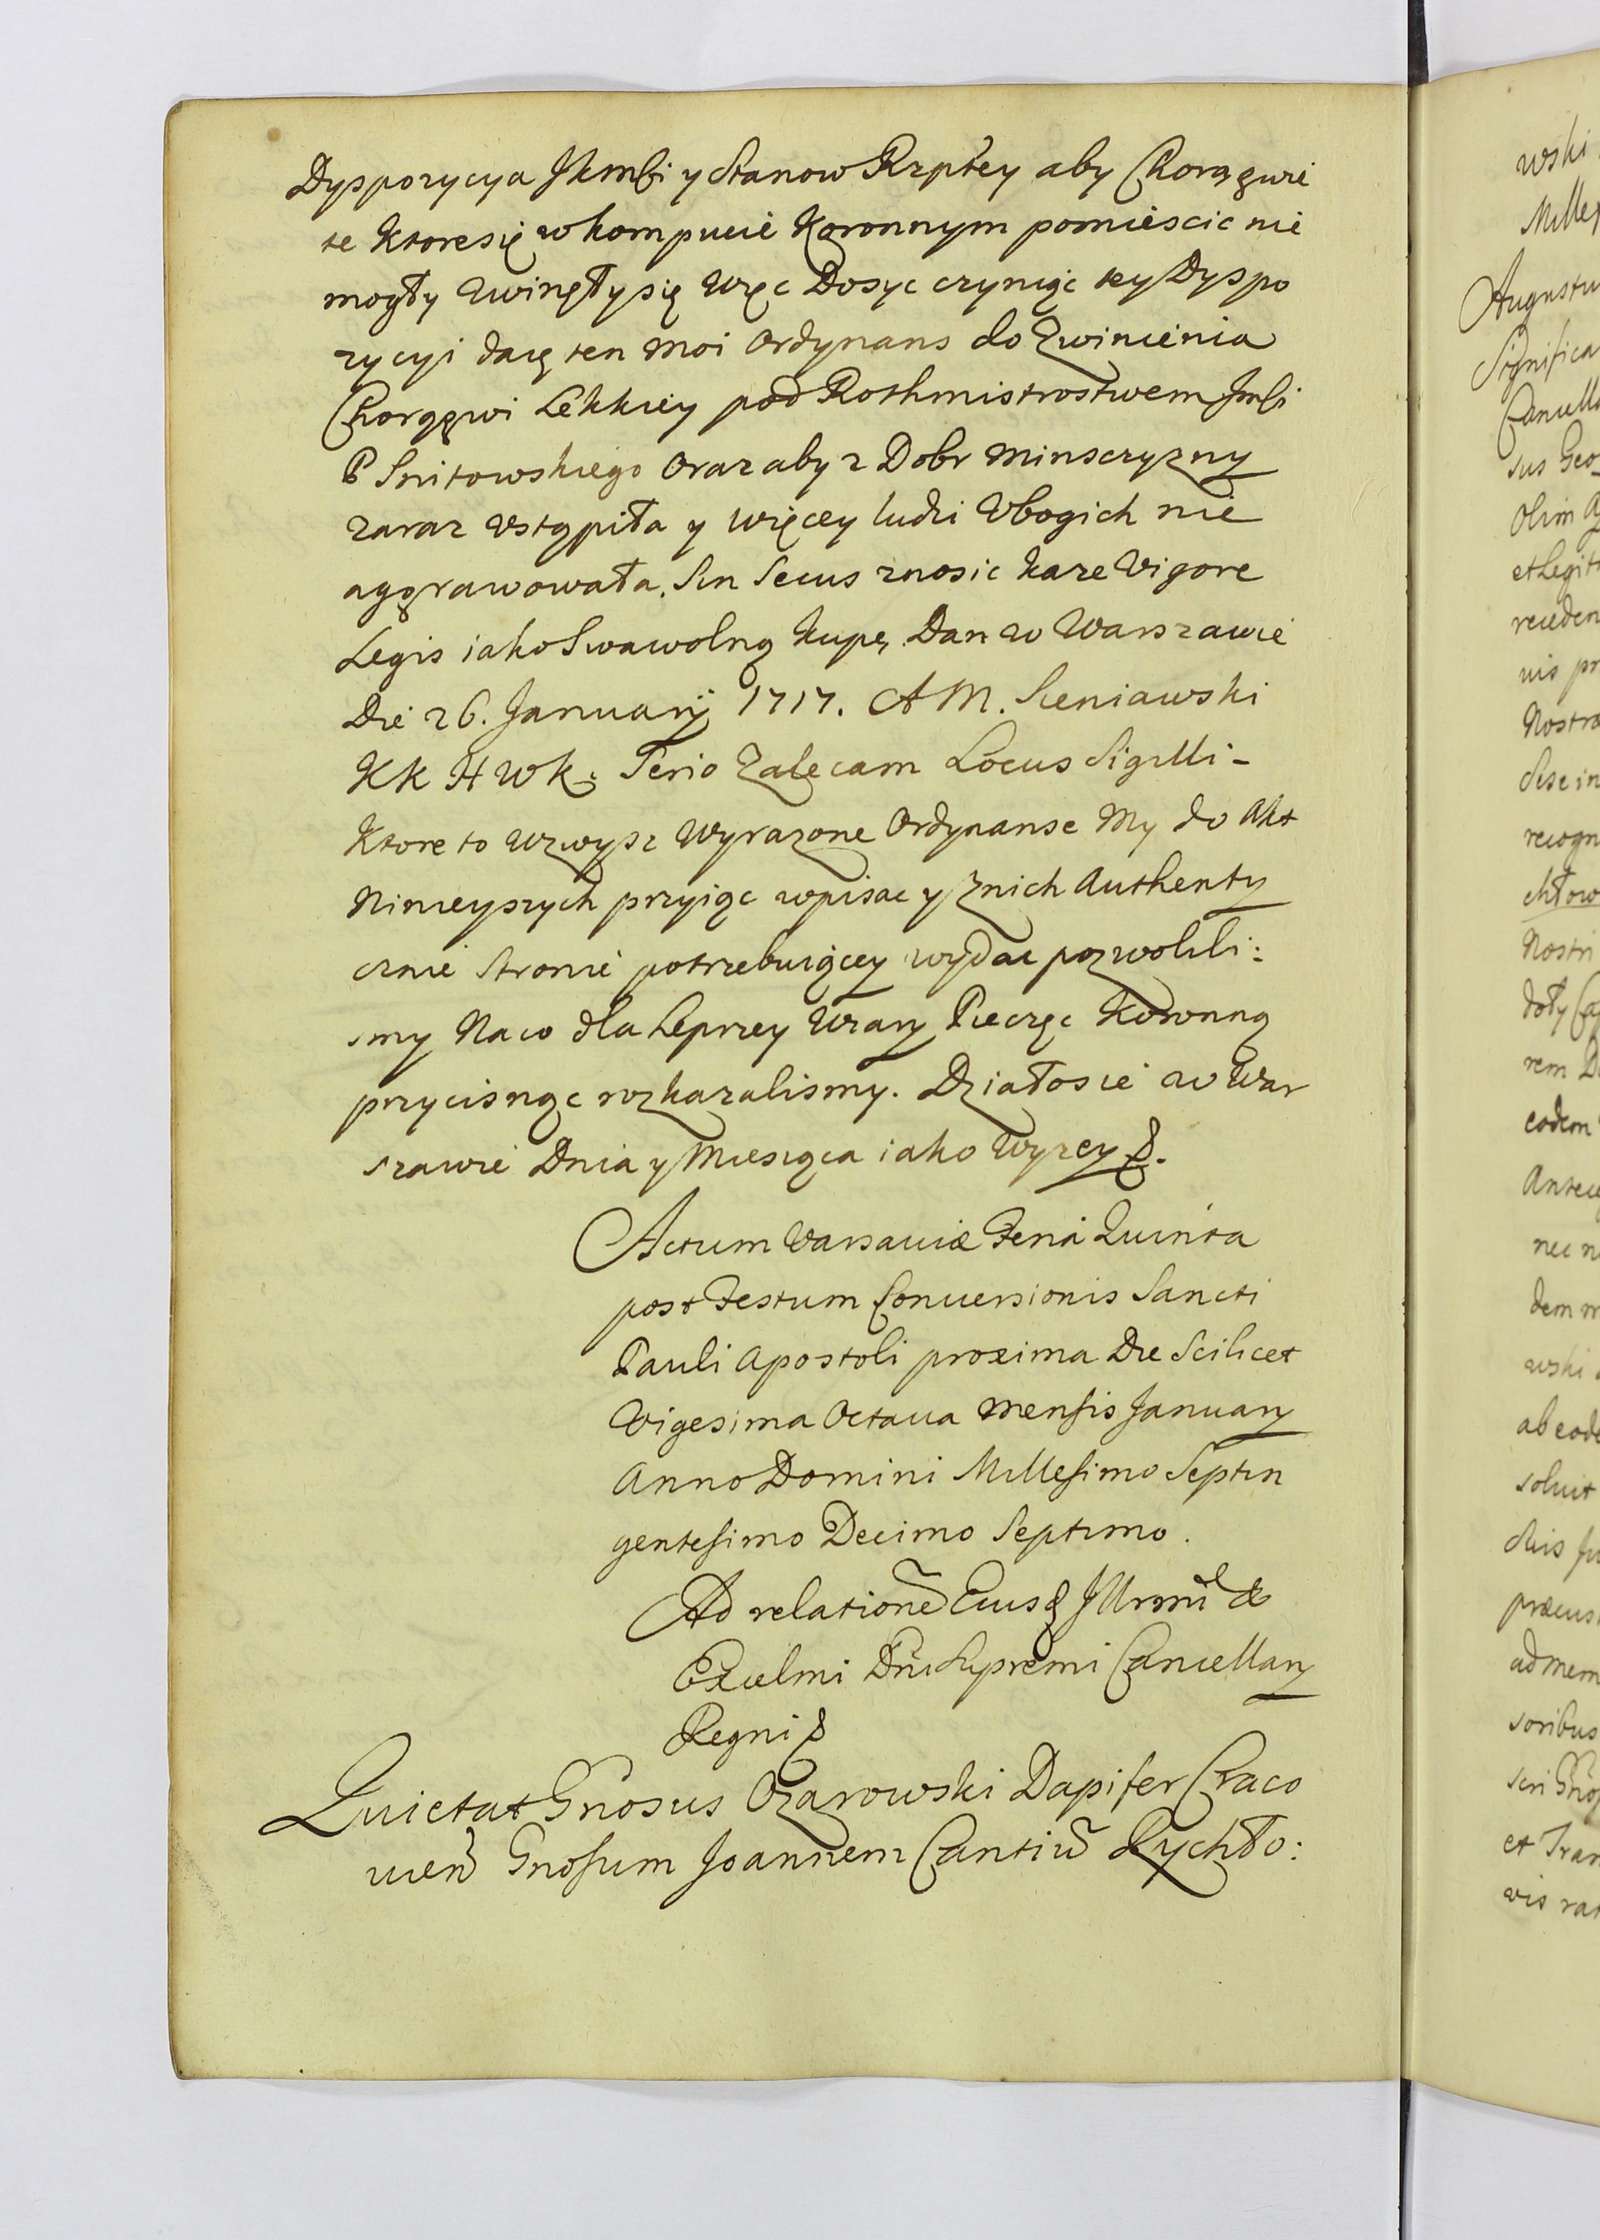 Dyspozycya JKmści y Stanow Rzptey aby Chorągwie
te ktore się w kompucie Koronnym pomiescic nie
mogły zwinęły się więc Dosyc czyniąc tey Dyspo
zycyi daię ten moi Ordynans do Zwinienia
Chorągwi Lekkiey pod Rothmistrostwem Jmści
P Snitowskiego Oraz aby z Dobr Minsczyzny
zaraz Vstąpiła y więcey ludzi Vbogich nie
aggrawowała. Sin Secus znosic każe Vigore
Legis iako Swawolną kupę. Dan w Warszawie
Die 26. Januarij 1717. A M. Sieniawski
KK H W K. Serio Zalecam Locus Sigilli -
Ktore to wzwysz Wyrażone Ordynanse My do Akt
Ninieyszych przyiąc wpisac y Znich Authenty
cznie Stronie potrzebuiącey wydac pozwolili:
smy Na co dla Lepszey Wiary Pieczęc Koronną
przycisnąc rozkazalismy. Działo sie w War
szawie Dnia y Miesiąca iako wyzey.
Actum Varsaviæ Feria Quinta
post Festum Conuersionis Sancti
Pauli Apostoli proxima Die Scilicet
Vigesima Octaua Mensis January
Anno Domini Millesimo Septin
gentesimo Decimo Septimo.
Ad relatione Eiusd Illrmi &
Excelmi Dni Supremi Cancellary
Regni
Quietat Gnosus Ożarowski Dapifer Craco
uien Gnosum Joannem Cantiu Rychło:
wski
Mille
Augustu
Significa
Cancella
sus Geo
Olim
et Legit
nis pr
Nostra
Sese in
recogn
chłow
Nostri
doty Ca
rem
eodem
Antece
nec n
dem m
wski
ab eode
soluit
præcus
ad mem
soribus
et Tran
vis rat